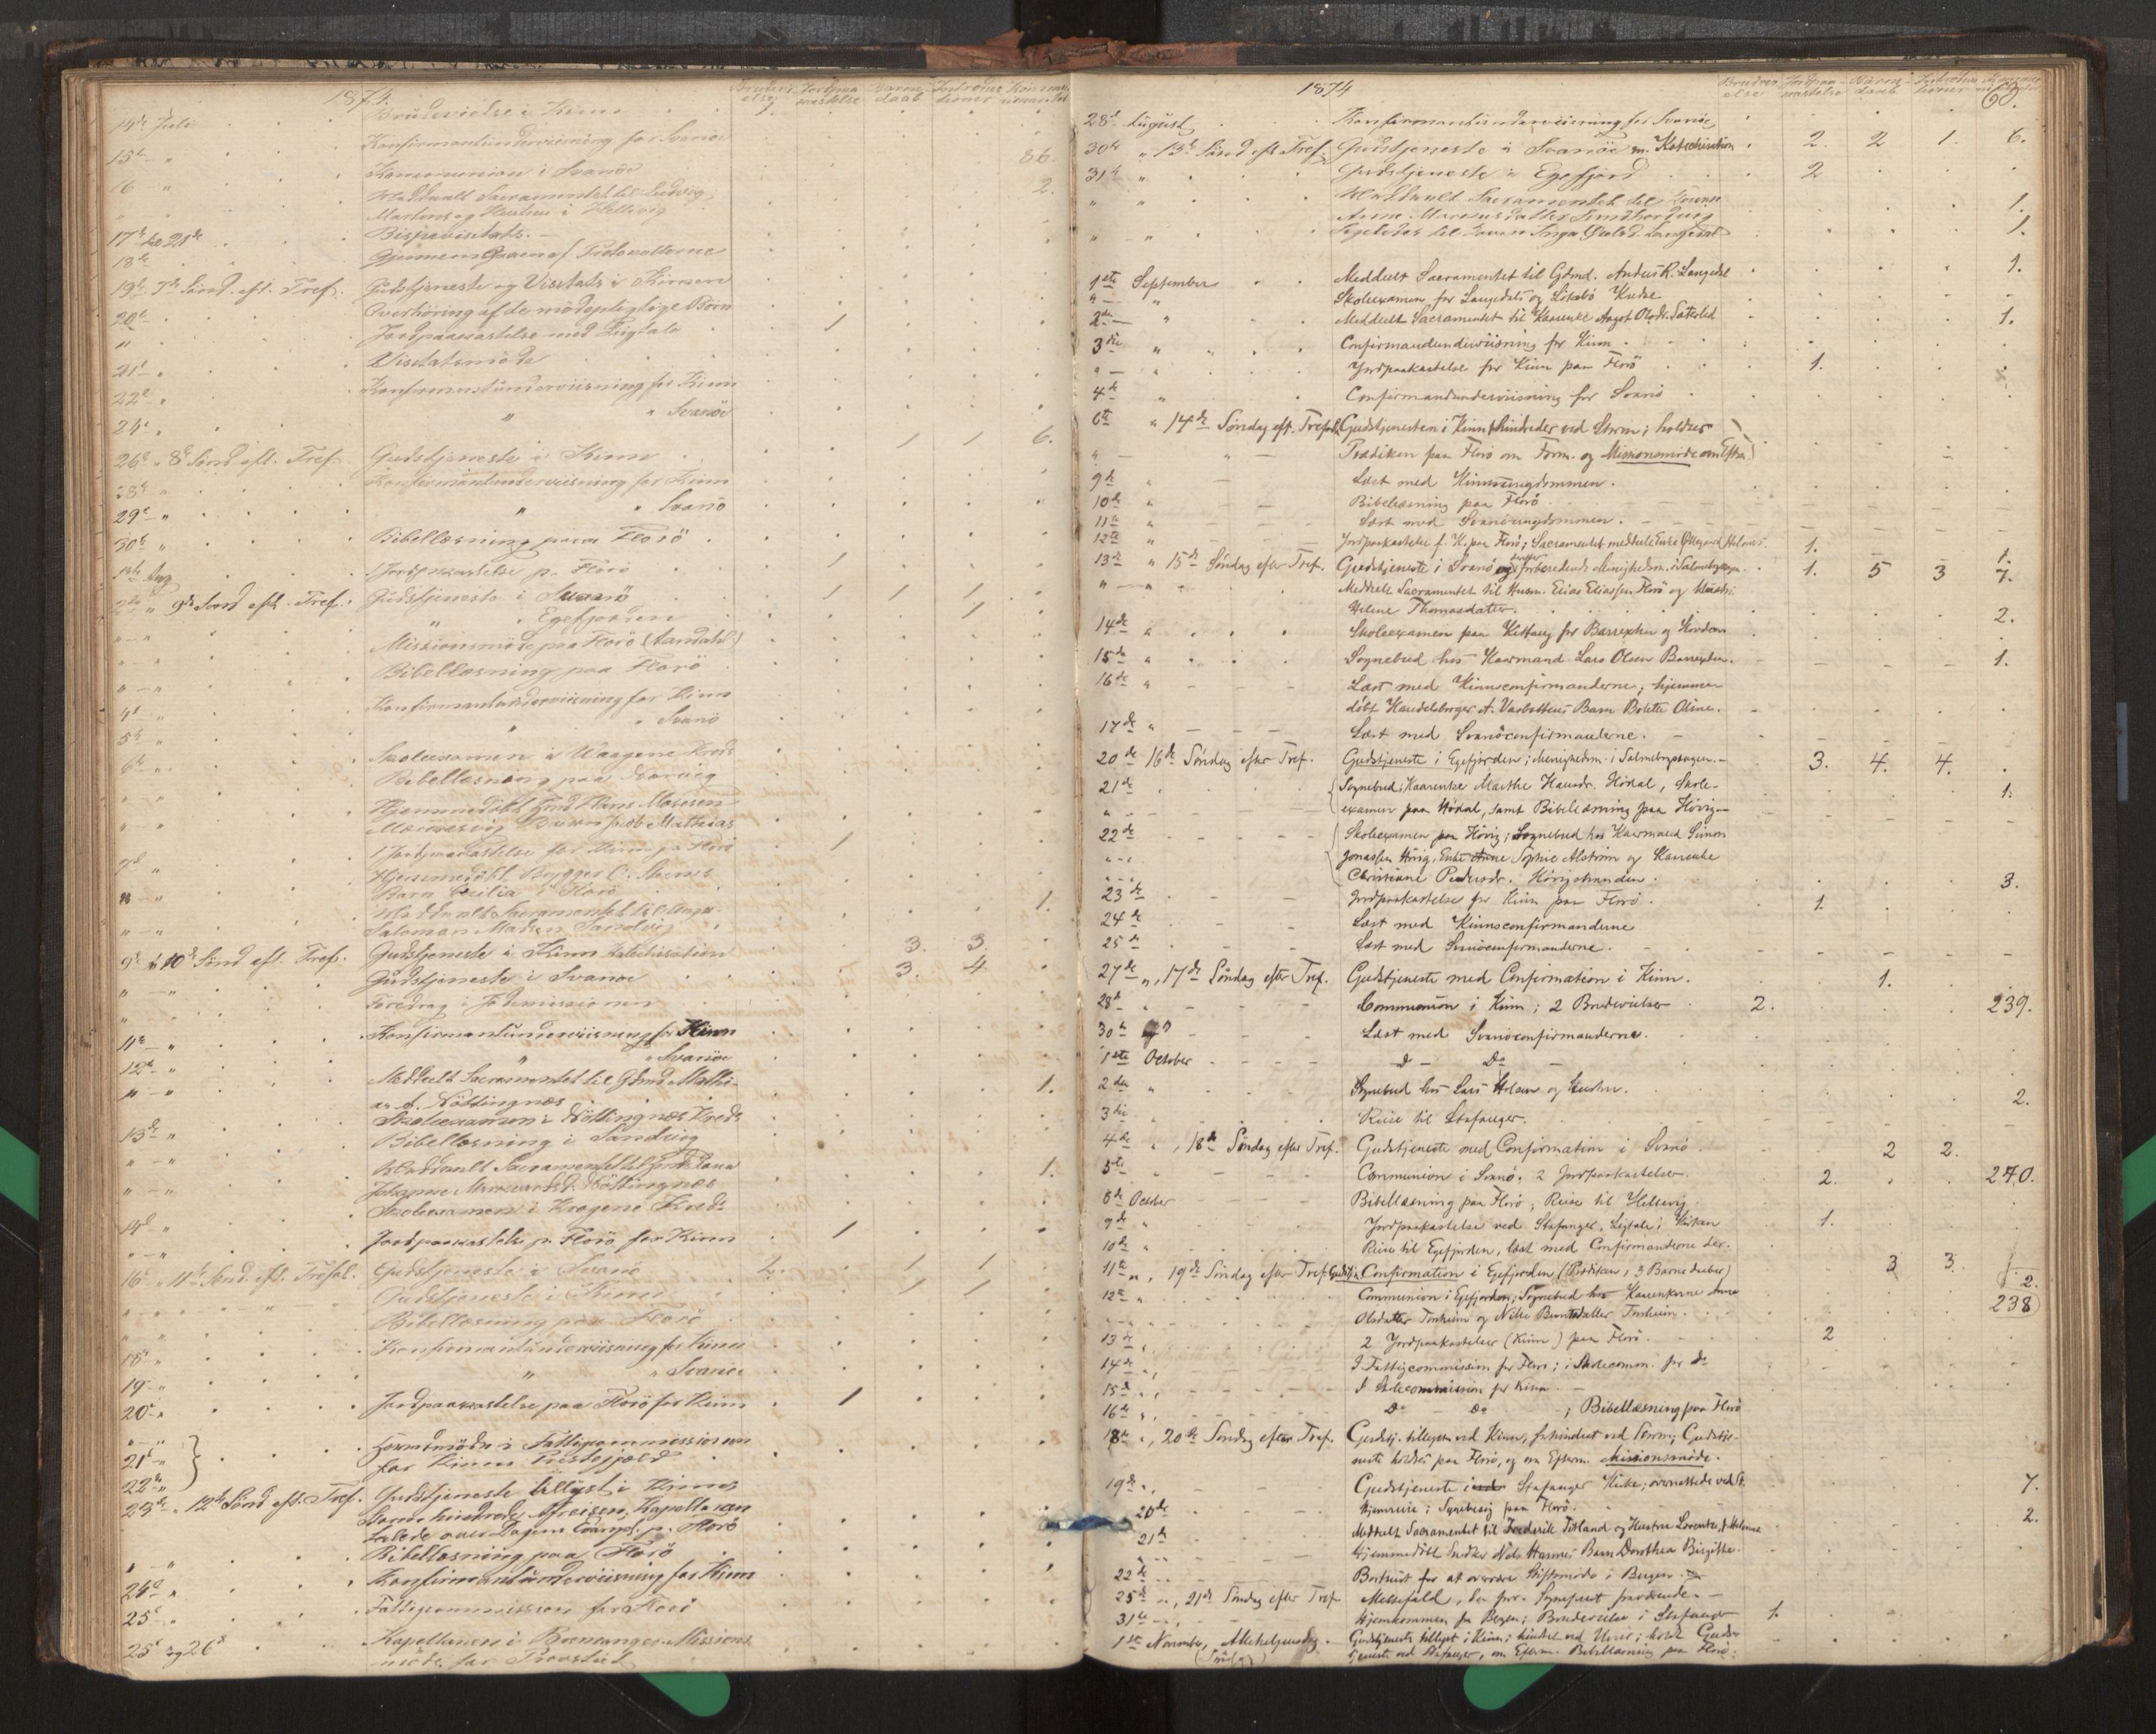 1874.
14de Juli Brudevielse i Kinn 1.
15d " Konfirmantunderviisning for Svanøe
16 " Kommunion i Svanöe 86.
Meddeelt Sacramentet til Ludvig 2.
Martens og Hustru i
17de til 21de Bispevisitats.
18de Gjennemgaaen af Protocollerne
19de 7de Sönd. eft. Tref. Gudstjeneste og Visitats i Kinn
20d Overhöring af de mödepligtige Börn
" Jordpaakastelse med Liigtale 1
21d " Visitatsmöde
22d " Konfirmantunderviisning for Kinn
24d " " " Svanöe
26d " 8de Sönd eft. Tref. Gudstjeneste i Kinn 1 1 6.
28d " Konfirmantunderviisning for Kinn
29d " " " Svanö
30d " Bibellæsning paa Florö
1ste Aug Jordpaakastelse p. Florö 1
2den " 9de Sönd eft. Tref. Gudstjeneste i Svanö 1 1 1
" " " Egefjorden 1
" " Missionsmöde paa Florö (Aandahl)
" " Bibellæsning paa Florö
4d " Konfirmantunderviisning for Kinn
5d " " " Svanö
6d " Skoleexamen i Vaagene Kreds
" " Bibellæsning paa
" " Hjemmedöbt Hans Mosesen
Barn Jacob Mathias
7d " Jordpaakastelse for Kinn p. Florö 1
" " Hjemmedöbt Brygger C.
Barn Cecilia i Florö
" " Meddeelt Sacramentet til 1.
Salomon Madsen Sandvig
9d " 10d Sönd eft. Tref. Gudstjeneste i Kinn Katechisation 3. 3.
" " Gudstjeneste i Svanöe 3. 4
" Foredrag i
11te " Konfirmantunderviisning for Kinn
12te " " " Svanöe
" " Meddeelt Sacramentet til Gbmd Mathi- 1.
as A. Nöttingnæs
13d " Skoleexamen i Nöttingnæs Kreds
" " Bibellæsning i Sandvig
" " Meddeelt Sacramentet til 1.
Johanne Nöttingnæs
14d " Skoleexamen i Kreds
" " Jordpaakastelse p. Florö for Kinn 1
16d " 11te Sönd. eft. Trefol. Gudstjeneste i Svanö 2. 1 1
Gudstjeneste i Kinn 1 1
Bibellæsning paa Florö
18d " Konfirmantunderviisning for Kinn
19 " " " Svanöe
20d " Jordpaakastelse paa Florö for Kinn 1
21d " Formandsmöde i Fattigcommissionen
22de " for Kinns Præstegjæld
23de " 12te Sönd eft. Tref. Gudstjeneste tillyst i Kinn
Storm hindrede Afreisen; Kapellanen
talede over Dagens Evangel. p. Florö
" " Bibellæsning paa Florö
24d " Konfirmantunderviisning for Kinn
25d " Fattigcommission for Florö
25d og 26d Kapellanen i Missions
möde for Provstiet
1874 60.
28d August Konfirmantunderviisning for Svanöe
30te " 13de Sönd eft Tref. Gudstjeneste i Svanöe m. Katechisation 2. 2 1. 6.
31te " Gudstjeneste i Egefjord 2
" " Meddeelt Sacramentet til
Anna 1.
" " Ligeledes til 1.
1ste September Meddeelt Sacramentet til Gbmd. Anders R. Langedal 1.
" — " Skoleexamen for Langedals og Kredse
2den — " Meddeelt Sacramentet til Kaarenke Aagot Olsdr. 1.
3die " Confirmandunderviisning for Kinn
" — " Jordpaakastelse for Kinn paa Florö 1.
4de " Confirmandunderviisning for Svanö
6te " 14de Søndag eft. Trefold. Gudstjenesten i Kinn forhindredes ved Storm; holdtes
" — Prædiken paa Florö om Form. og Missionsmöde om Efterm.
9de " Læst med Kinnungdommen.
10de " Bibellæsning paa Florö
11te " Læst med Svanöungdommen.
12te " Jordpaakastelse f. K. paa Florö; Sacramentet meddeelt Enke 1. 1.
13de " 15de Søndag efter Tref. Gudstjeneste i Svanö og forberedende Menighedsm. i Salmebogssagen. 1. 5 3 7.
" — " Meddeelt Sacramentet til Husm. Elias Eliassen Florö og Hustru
Helene Thomasdatter. 2.
14de " Skoleexamen paa for Barrexten og Hovden
15de " Sognebud hos Kaarmand Lars Olsen Barrexten. 1.
16de " Læst med Kinnsconfirmanderne; hjemme-
döbt Handelsborger A. Barn Bolette Oline.
17de " Læst med Svanöconfirmanderne.
20de 16de Søndag efter Tref. Gudstjeneste i Egefjorden; Menighedsm. i Salmebogssagen. 3. 4. 4.
21de Sognebud; Kaarenke Marthe Hansdr. Hödal, Skole- 1.
examen paa Hödal, samt Bibellæsning paa Hövig
22de Skoleexamen paa Hövig; Sognebud hos Kaarmand Simon
Jonassen Hövig, Enke Sophie Alström og Kaarenke
Christiane Pedersdr. Hövigstranden. 3.
23de Jordpaakastelse for Kinn paa Florö. 1.
24de Læst med Kinnsconfirmanderne
25de Læst med Svanöconfirmanderne.
27de ", 17de Søndag efter Tref. Gudstjeneste med Confirmation i Kinn. 1.
28de " Communion i Kinn; 2 Brudevielser 2. 239.
30te Læst med Svanöconfirmanderne.
1ste October do Do
2den " Sognebud hos Lars Holsen og Hustru. 2.
3die " Reise til Stafanger.
4de ", 18de Søndag efter Tref. Gudstjeneste med Confirmation i Svanö. 2 2.
5te " Communion i Svanö. 2 Jordpaakastelser. 2. 270.
8de October Bibellæsning paa Florö, Reise til
9de " Jordpaakastelse ved Stafanger, Ligtale i Kirken 1.
10de " Reise til Egefjorden, læst med Confirmanderne der.
11te ", 19de Søndag efter Tref. Gudstj. Confirmation i Egefjorden (Prædiken, 3 Barnedaaber) 3 3.
12te " Communion i Egefjorden; Sognebud hos Kaarenkerne Anne 2.
Olsdatter og Nille 238
13de " 2 Jordpaakastelser (Kinn) paa Florö. 2
14de " I Fattigcommission for Florö; i Skolecomm. for do
15de " I Skolecommission for Kinn
16de " Do Do ; Bibellæsning paa Florö
18de ", 20de Søndag efter Tref. Gudstj. tillyst ved Kinn, forhindret ved Storm; Gudstje-
neste holdtes paa Florö, og om Efterm. Missionsmöde.
19de ", Gudstjeneste i Stafanger Kirke; overnattede ved St. 7.
20de Hjemreise; paa Florö.
21de Meddeelt Sacramentet til Frederik Titland og Hustru 2.
Hjemmedöbt Snedker Nils Barn Dorothea Birgitte.
22de Bortreist for at overvære Stiftsmöde i Bergen.
25de ", 21de Søndag efter Tref. Messefald, da Sognepræst fraværende.
31te ", Hjemkommen fra Bergen; Brudevielse i Stafanger 1.
1ste November, Allehelgensdag. Gudstjeneste tillyst i Kinn; hindret ved Uveir; holdt Guds-
(Søndag) tjeneste ved Stafanger, om Efterm. Bibellæsning paa Florö.